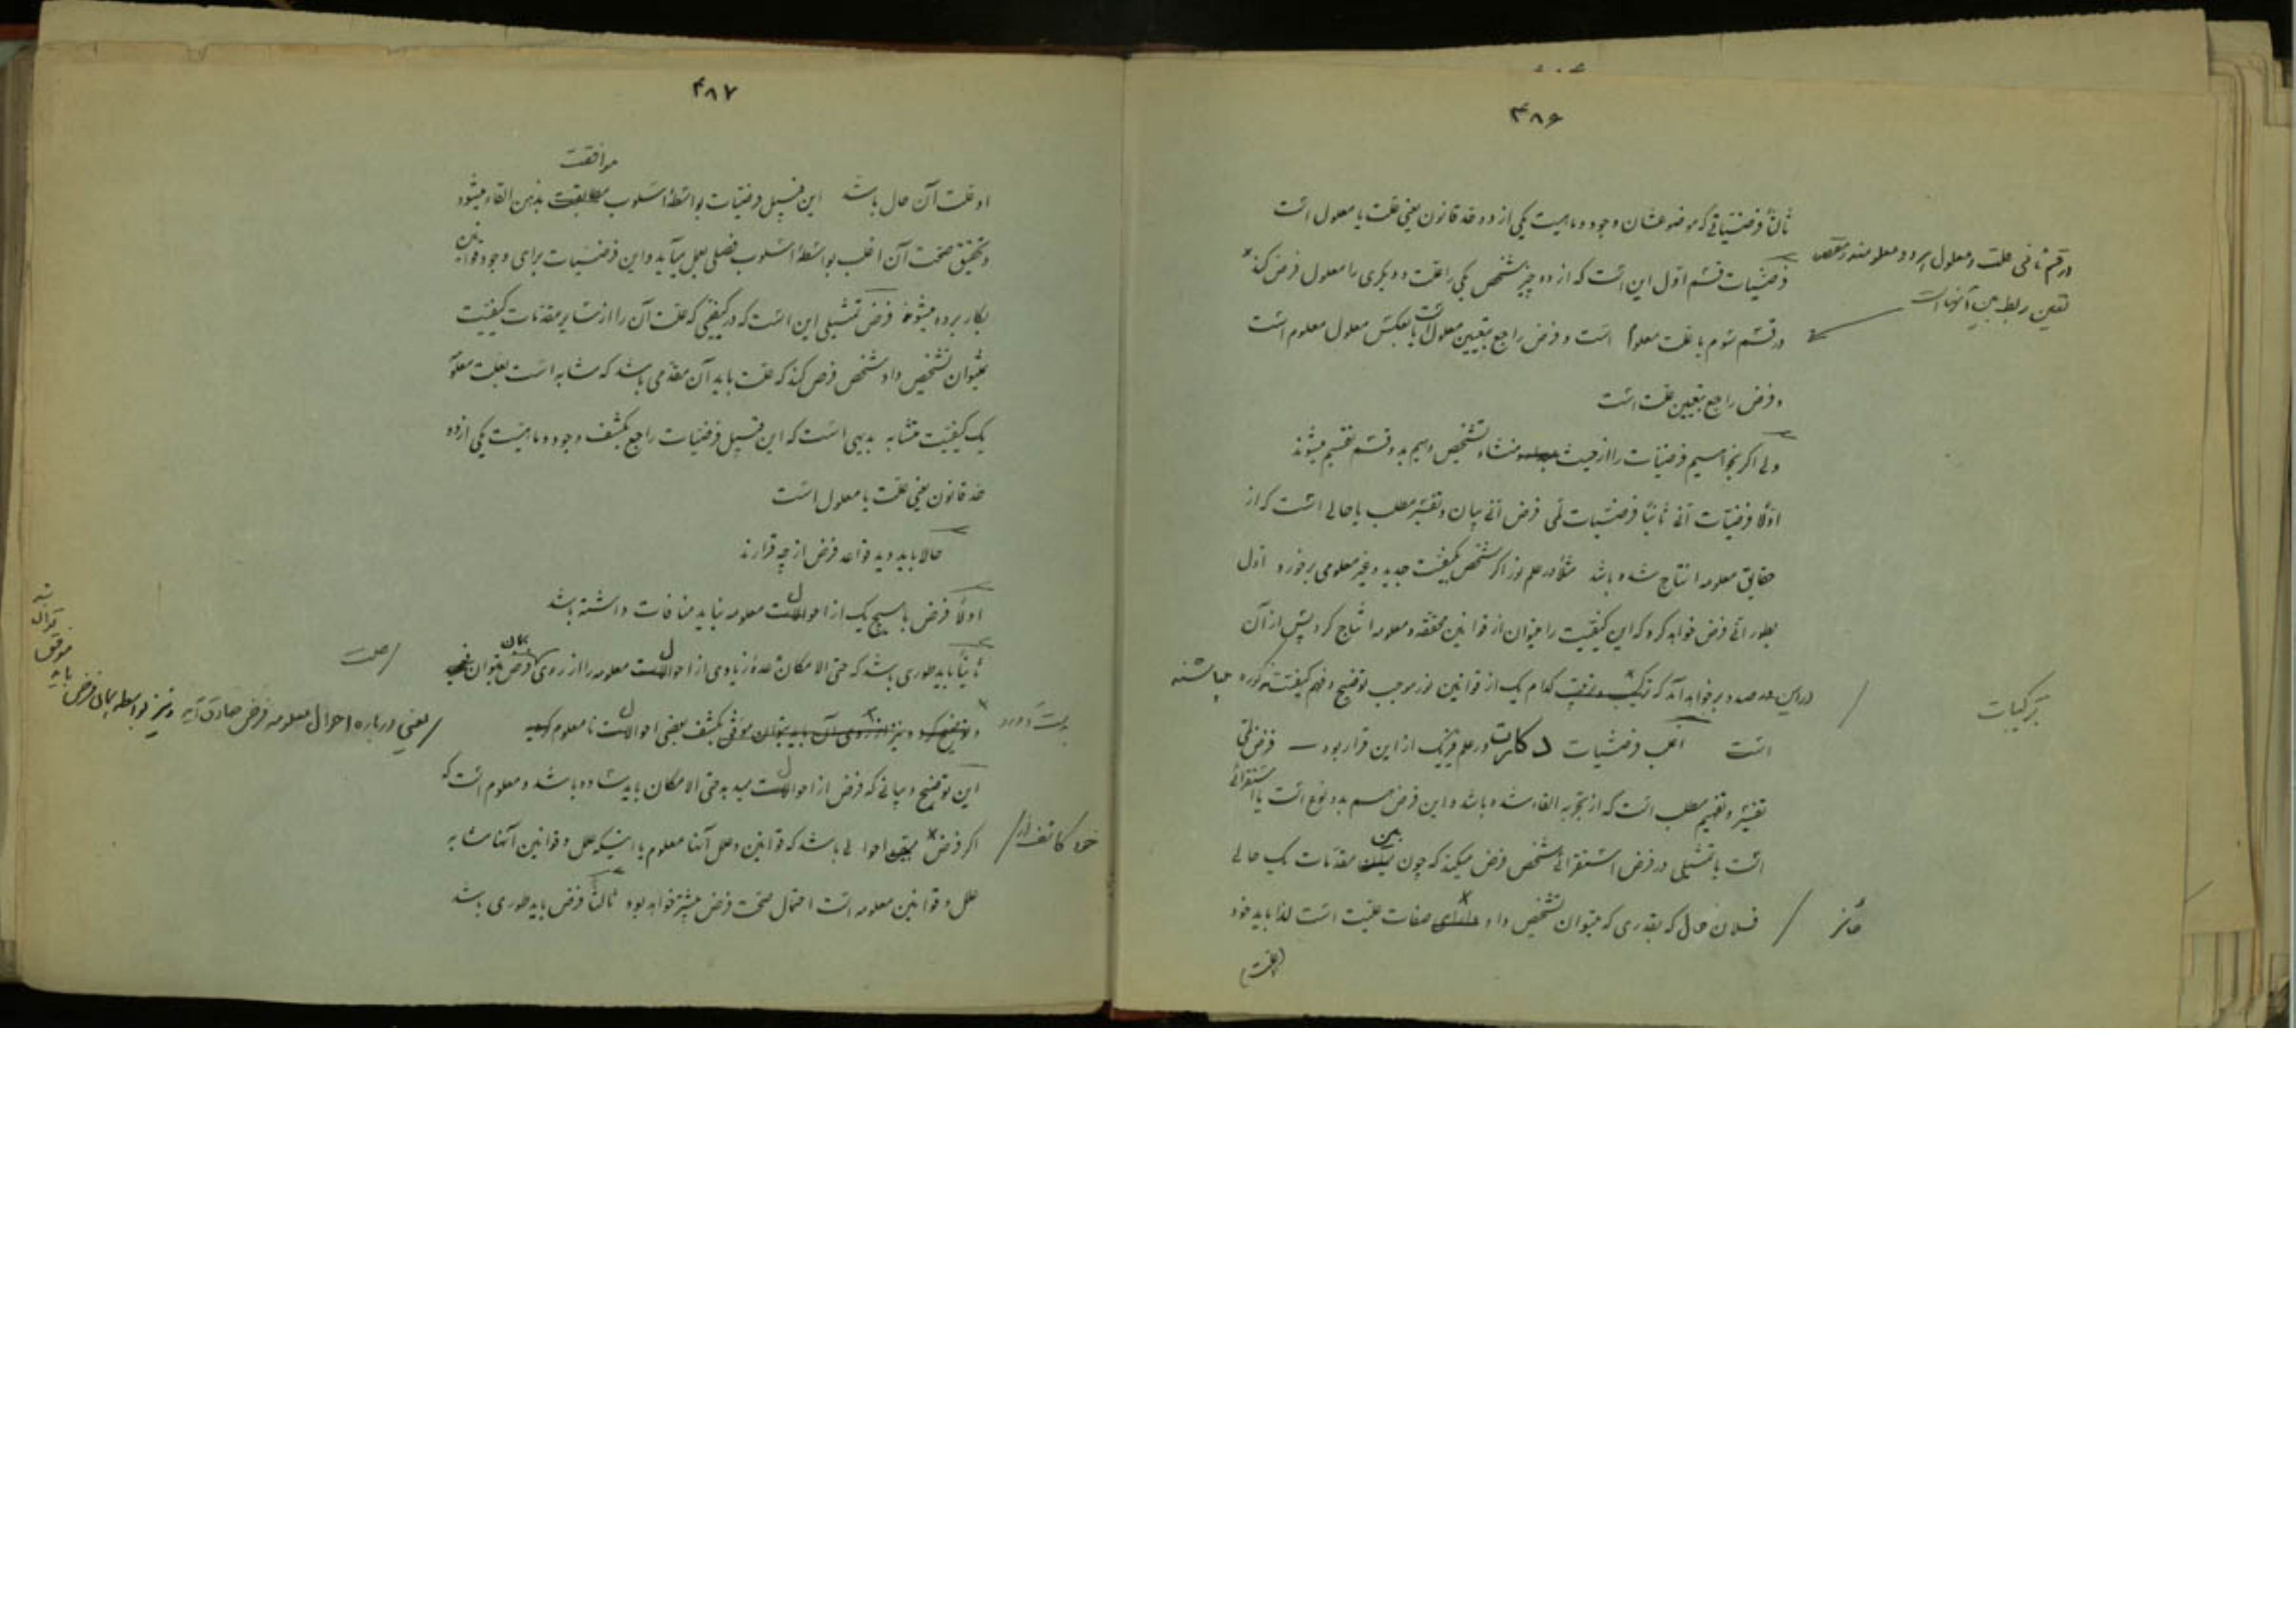 ۴۸۶
ثالثاً فرضیاتی که موضوعشان وجود و ماهیت یکی از دو حد قانون یعنی علت یا معلول است
فرضیات قسم اول این است که از دو چیز شخص یکی را علت و دیگری را معلول فرض کند
در قسم ثانی علت و معلول هر دو معلومند و مقصود
تعیین ربط بین آنها است
در قسم سوم یا علت معلوم است و فرض راجع بتعیین معلول است یا بالعکس معلول معلوم است
و فرض راجع بتعیین علت است
ولی اگر بخواهیم فرضیات را از حیث منشاء تشخیص دهیم بدو قسم تقسیم میشوند
اولاً فرضیات انّی ثانیاً فرضیات لمّی فرض انّی بیان و تفسیر مطلب یا حالی است که از
حقایق معلومه انتاج شده باشد مثلاً در علم نور اگر شخص بکیفیت جدید و غیر معلومی برخورد اول
بطور انّی فرض خواهد کرد که این کیفیت را میتوان از قوانین محققه و معلومه انتاج کرد پس از آن
در این صدد بر خواهد آمد که کدام یک از قوانین نور موجب توضیح و فهم کیفیت مذکوره میباشند
ترکیبات
است اغلب فرضیات دکارت در علم فیزیک از این قرار بود — فرض لمّی
تفسیر و تفهیم مطلب است که از تجربه القاء شده باشد و این فرض هم بدو نوع است یا استقرائی
است یا تمثیلی در فرض استقرائی شخص فرض میکند که چون بین مقدمات یک حالی
فلان حال که بقدری که میتوان تشخیص داد دارای صفات علیت است لذا باید خود
حائز
(علت)
۴۸۷
موافقت
او علت آن حال باشد این قبیل فرضیات بواسطهٔ اسلوب مطابقت بذهن القاء میشود
و تحقیق صحت آن اغلب بواسطهٔ اسلوب فصلی بعمل میآید و این فرضیات برای وجود قوانین
بکار برده میشود فرض تمثیلی این است که در کیفیتی که علت آن را از سایر مقدمات کیفیت
نمیتوان تشخیص داد شخص فرض کند که علت باید آن مقدمی باشد که مشابه است بعلت معلوم
یک کیفیت مشابه بدیهی است که این قبیل فرضیات راجع بکشف وجود و ماهیت یکی از دو
حد قانون یعنی علت یا معلول است
حالا باید دید قواعد فرض از چه قرارند
اولاً فرض با هیچ یک از احوال معلومه نباید منافات داشته باشد
ثانیاً باید طوری باشد که حتی الامکان عدهٔ زیادی از احوال معلومه را از روی همان فرض بتوان
و توضیح کرد و نیز از روی آن باید بتوان موفق بکشف بعضی احوال نا معلوم گردید
یعنی درباره احوال معلومه فرض صادق آید و نیز بواسطه همان فرض باید
موفق
بتوان
شد
این توضیح و بیانی که فرض از احوال میدهد حتی الامکان باید ساده باشد و معلوم است که
اگر فرض احوالی باشد که قوانین و علل آنها معلوم یا اینکه علل و قوانین آنها مشابه
علل و قوانین معلومه است احتمال صحت فرض بیشتر خواهد بود ثالثاً فرض باید طوری باشد